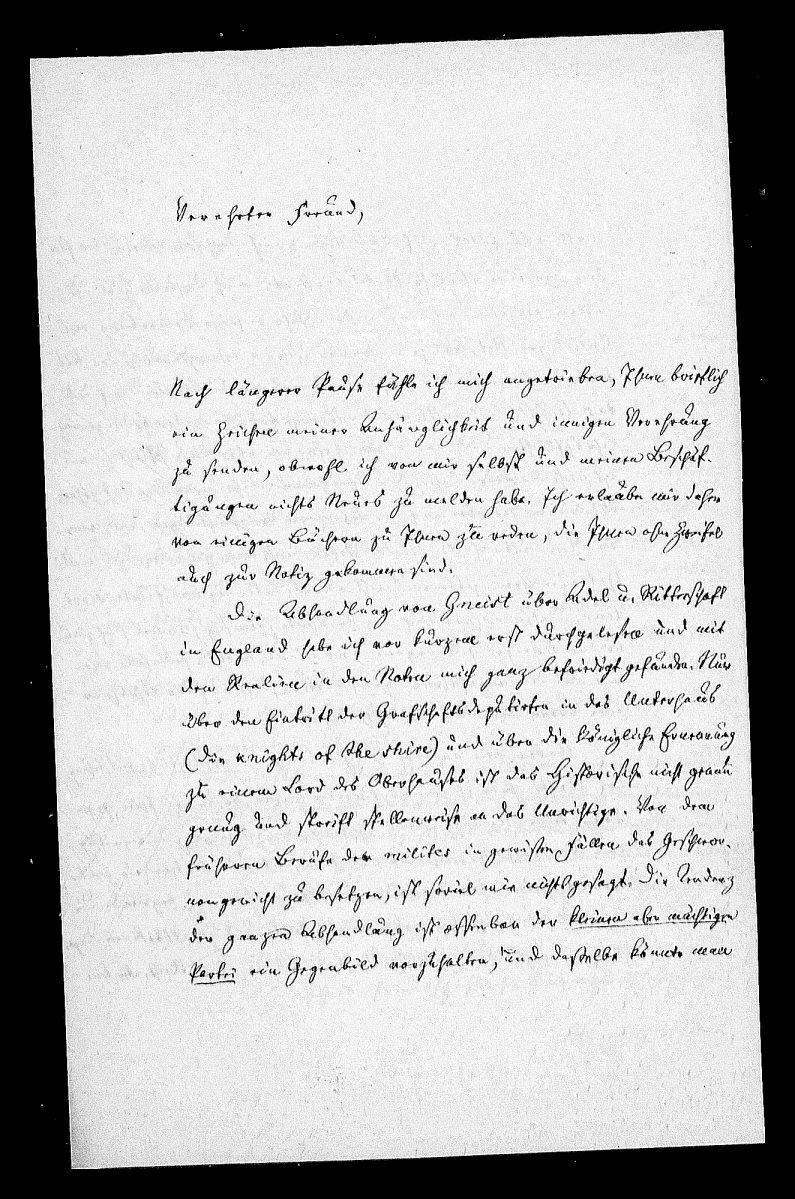 Verehrter Freund,
Nach längerer Pause fühle ich mich angetrieben, Ihnen brieflich
ein Zeichen meiner Anhänglichkeit und innigen Verehrung
zu senden, obwohl ich von mir selbst und meinen Beschäf-
tigungen nichts Neues zu melden habe. Ich erlaube mir daher
von einigen Büchern zu Ihnen zu reden, die Ihnen ohne Zweifel
auch zur Notiz gekommen sind.
Die Abhandlung von Gneist über Adel u. Ritterschaft
in England habe ich vor kurzem erst durchgelesen und mit
den Realien in den Noten mich ganz befriedigt gefunden. Nur
über den Eintritt der Grafschaftsdeputirten in das Unterhaus
(die knights of the shire) und über die königliche Ernennung
zu einem Lord des Oberhauses ist das Historische nicht genau
genug und streift stellenweise an das Unrichtige. Von dem
früheren Berufe der milites in gewissen Fällen das Geschwor-
nengericht zu besetzen, ist soviel wie nichts gesagt. Die Tendenz
der ganzen Abhandlung ist offenbar der kleinen aber mächtigen
Partei ein Gegenbild vorzuhalten, und dasselbe könnte man